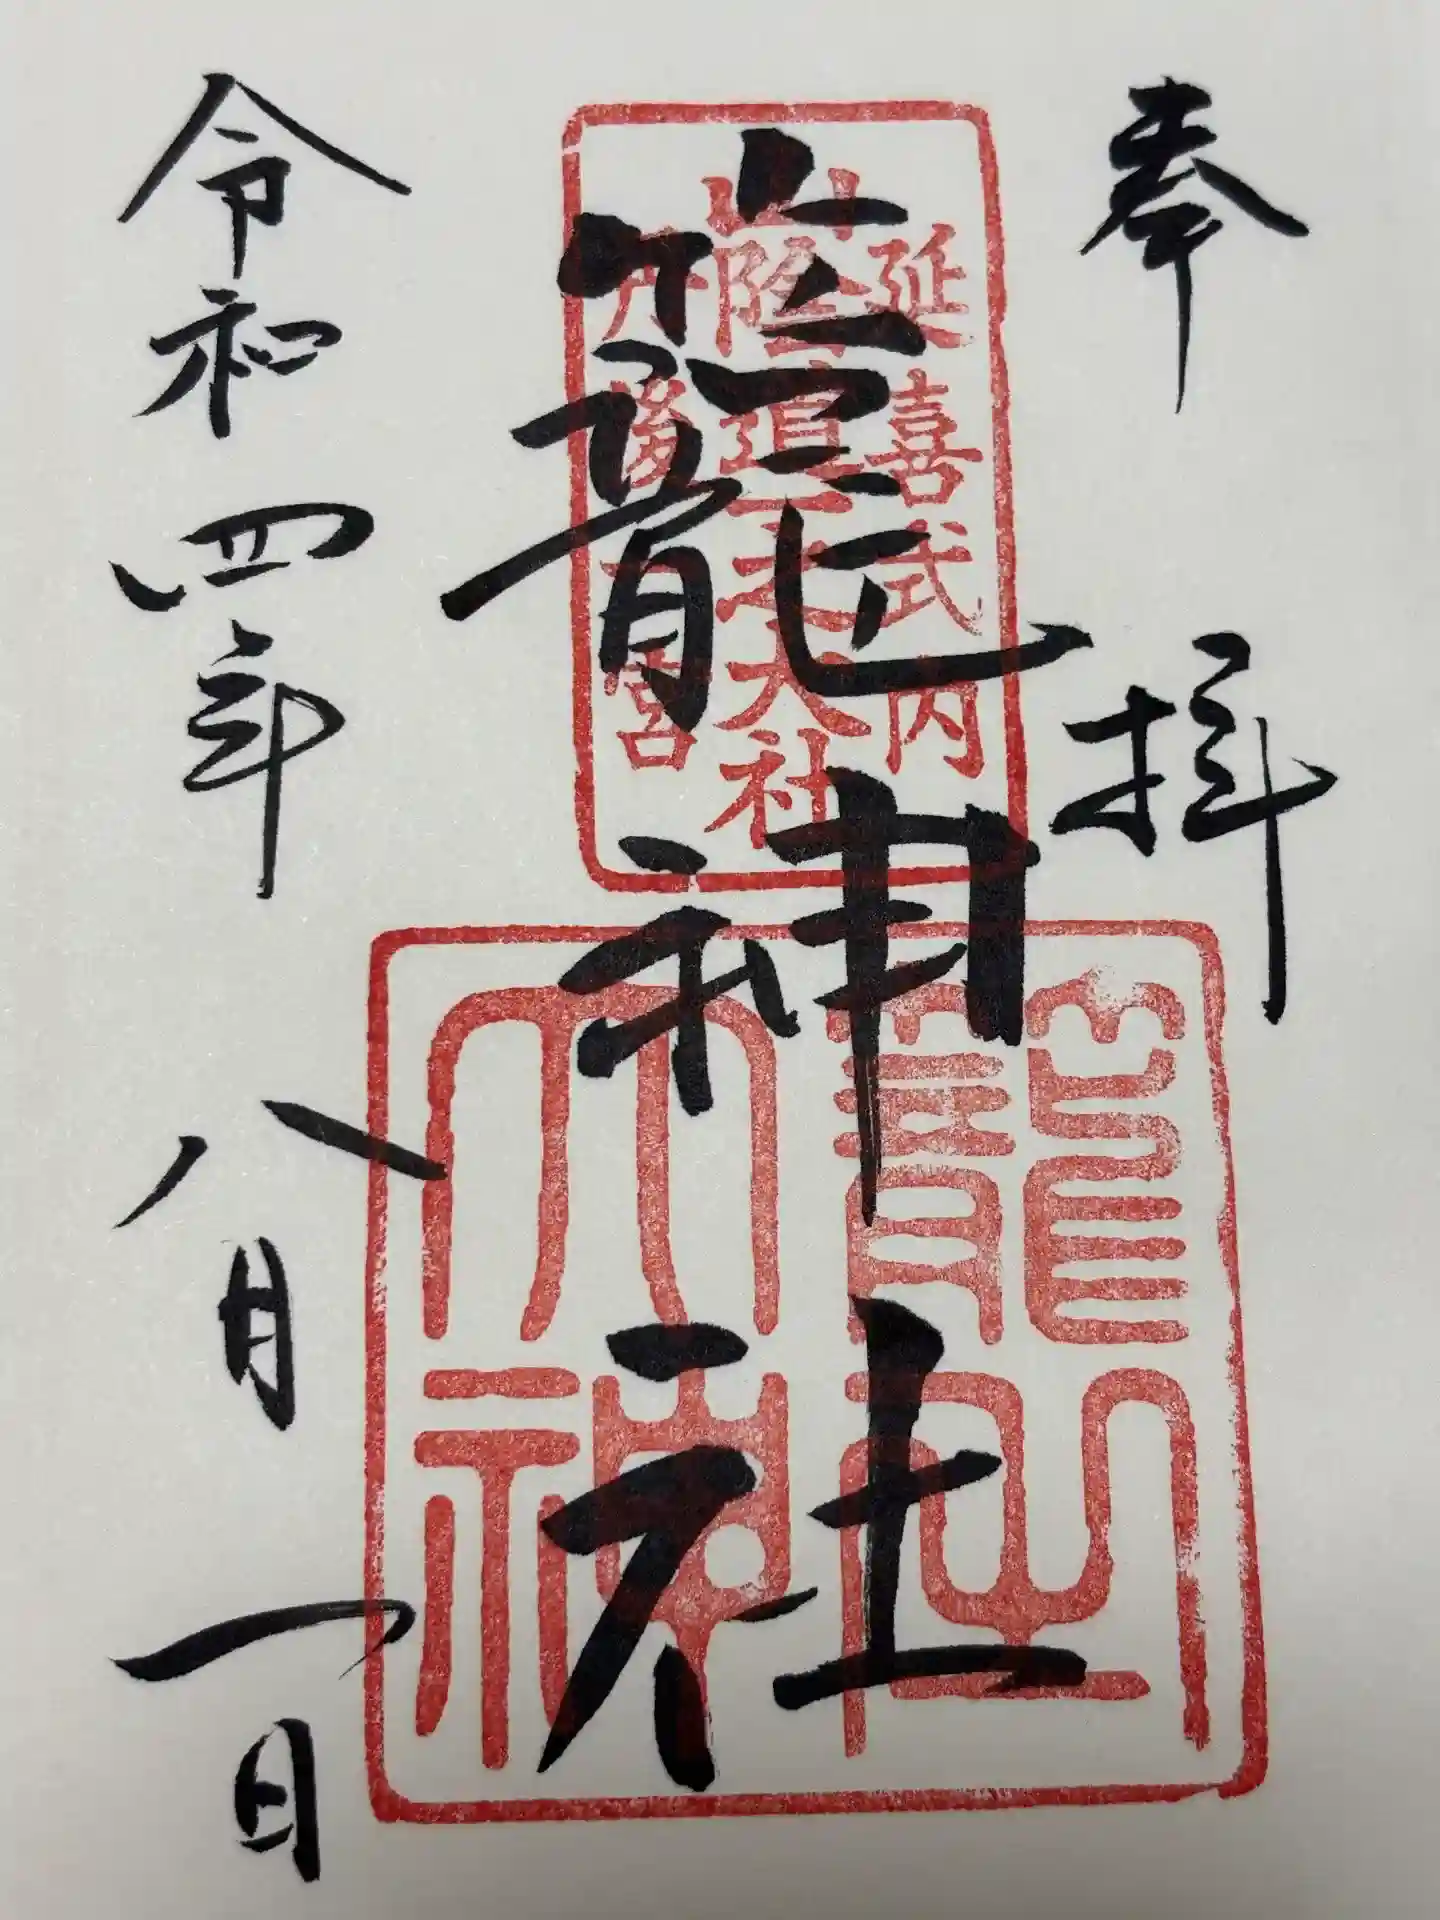 奉拝
延喜式内
山陰道一之大社
丹後一宮
籠神社
大神
令和四年八月一日